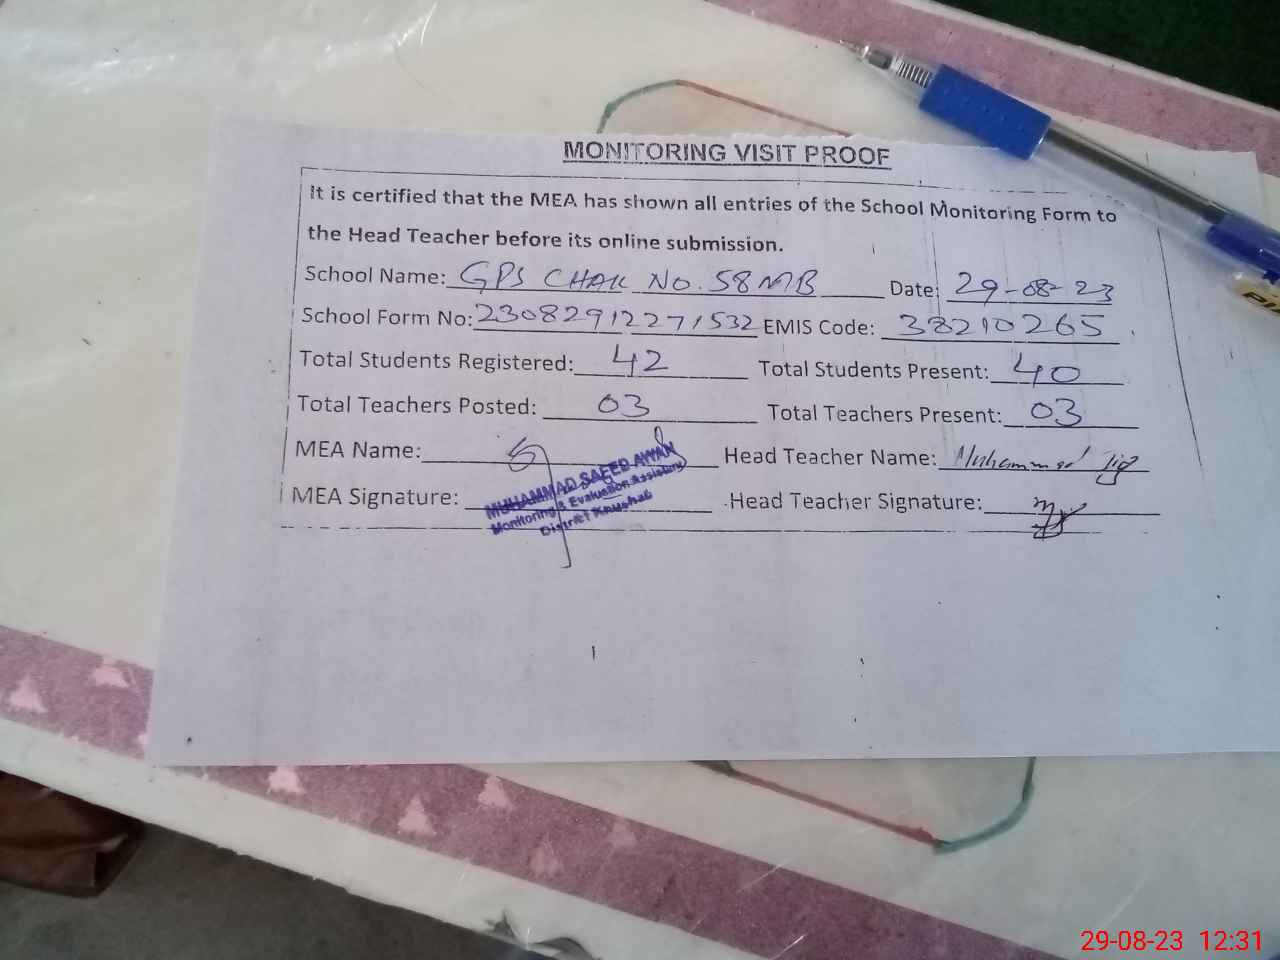 MONITORING VISIT PROOF
It is certified that the MEA has shown all entries of the School Monitoring Form to
the Head Teacher before its online submission.
School Name: GPS CHAK NO. 58MB Date: 29-08-23
School Form No: 23082912271532 EMIS Code: 38210265
Total Students Registered: 42 Total Students Present: 40
Total Teachers Posted: 03 Total Teachers Present: 03
MEA Name: Head Teacher Name: Muhammad
MUHAMMAD SAEED AWAN
MEA Signature: Head Teacher Signature:
Monitoring & Evaluation Assistant
District Khushab
29-08-23 12:31